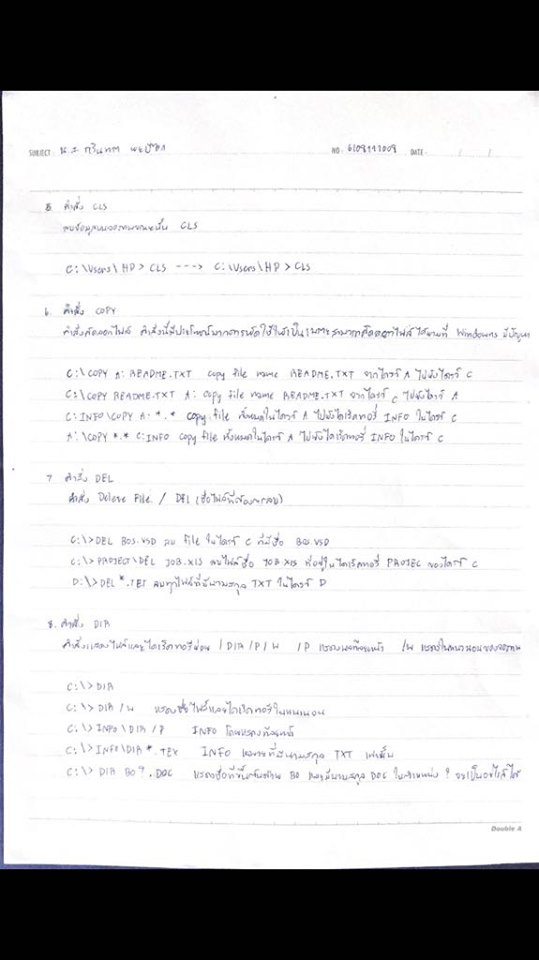 SUBJECT น.ส. NO. 6108191008 DATE / /
5 คำสั่ง CLS
ลบข้อมูลบนจอภาพขณะนั้น CLS
C:\Users\HP > CLS ----> C:\Users\HP > CLS
6. คำสั่ง COPY
คำสั่งคัดลอกไฟล์ คำสั่งนี้มีประโยชน์มากควรหัดใช้ให้เป็น เพราะสามารถคัดลอกไฟล์ได้ยามที่ Windowns มีปัญหา
C:\COPY A: README.TXT copy file name README.TXT จากไดรว์ A ไปยังไดรว์ C
C:\COPY README.TXT A: copy file name README.TXT จากไดรว์ C ไปยังไดรว์ A
C:INFO\COPY A: *.* copy file ทั้งหมดในไดรว์ A ไปยังไดเร็คทอรี่ INFO ในไดรว์ C
A:\COPY *.* C:INFO copy file ทั้งหมดในไดรว์ A ไปยังไดเร็คทอรี่ INFO ในไดรว์ C
7 คำสั่ง DEL
คำสั่ง Delete File / DEL (ชื่อไฟล์ที่ต้องการลบ)
C:\>DEL BOS.VSD ลบ file ในไดรว์ C ที่มีชื่อ BOS.VSD
C:\>PROJECT\DEL JOB.XLS ลบไฟล์ชื่อ JOB.XLS ที่อยู่ในไดเร็คทอรี่ PROJEC ของไดรว์ C
D:\>DEL *.TET ลบทุกไฟล์ที่มีนามสกุล TXT ในไดรว์ D
8. คำสั่ง DIR
คำสั่งแสดงไฟล์และไดเร็คทอรี่ย่อย / DIR /P /W /P แสดงผลทีละหน้า /W แสดงในแนวนอนของจอภาพ
C:\> DIR
C:\> DIR /W แสดงชื่อไฟล์และไดเร็คทอรี่ในแนวนอน
C:\> INFO\DIR /P INFO โดยแสดงทีละหน้า
C:\> INFO\DIR *.TEX INFO เฉพาะที่มีนามสกุล TXT เท่านั้น
C:\> DIR BO?.DOC แสดงชื่อที่ขึ้นต้นด้วย BO และมีนามสกุล DOC ในตำแหน่ง ? จะเป็นอะไรก็ได้
Double A